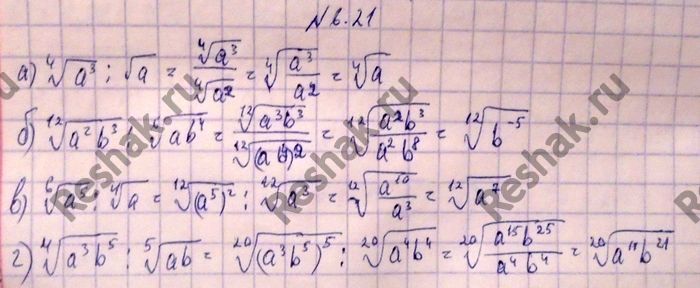 № 6.21
а) ⁴√(a³) : √a = ⁴√(a³)/⁴√(a²) = ⁴√(a³/a²) = ⁴√a
б) ¹²√(a²b³) : ⁶√(ab⁴) = ¹²√(a³b³)/¹²√((ab⁴)²) = ¹²√(a²b³/a²b⁸) = ¹²√(b⁻⁵)
в) ⁶√(a⁵) : ⁴√a = ¹²√((a⁵)²) : ¹²√(a³) = ¹²√(a¹⁰/a³) = ¹²√(a⁷)
г) ⁴√(a³b⁵) : ⁵√(ab) = ²⁰√((a³b⁵)⁵) : ²⁰√(a⁴b⁴) = ²⁰√(a¹⁵b²⁵/a⁴b⁴) = ²⁰√(a¹¹b²¹)
Reshak.ru
Reshak.ru
Reshak.ru
Reshak.ru